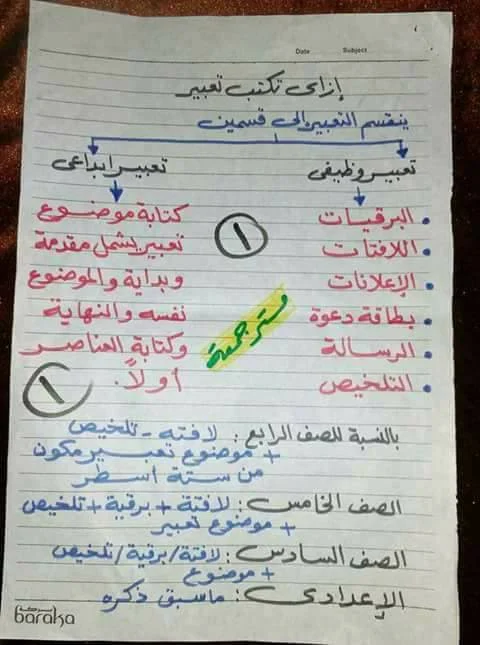 Date Subject
إزاى تكتب تعبير
ينقسم التعبير إلى قسمين
تعبير وظيفى
تعبير ابداعى
البرقيات
اللافتات
الإعلانات
بطاقة دعوة
الرسالة
التلخيص
كتابة موضوع
تعبير يشمل مقدمة
وبداية والموضوع
نفسه والنهاية
وكتابة العناصر
أولاً.
١
مستر جمعة
١
بالنسبة للصف الرابع: لافته - تلخيص
+ موضوع تعبير مكون
من ستة أسطر
الصف الخامس: لافتة + برقية + تلخيص
+ موضوع تعبير
الصف السادس: لافتة / برقية / تلخيص
+ موضوع
الإعدادى: ماسبق ذكره
بركة
baraka